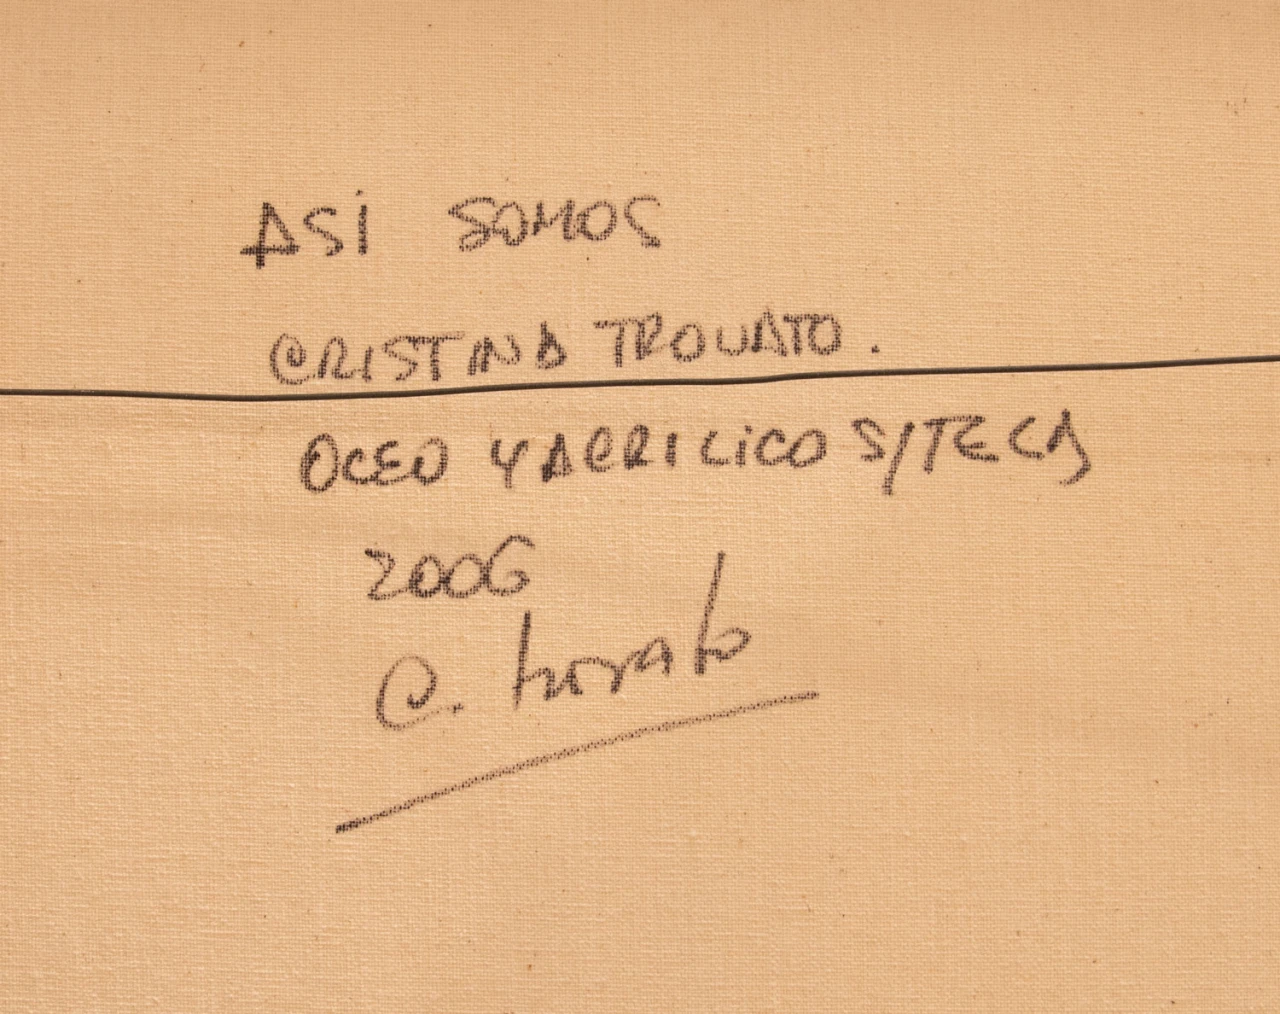 ASi SOMOS
CRISTINA TROVATO.
OLEO Y ACRILICO S/TELA
2006
C. trovato